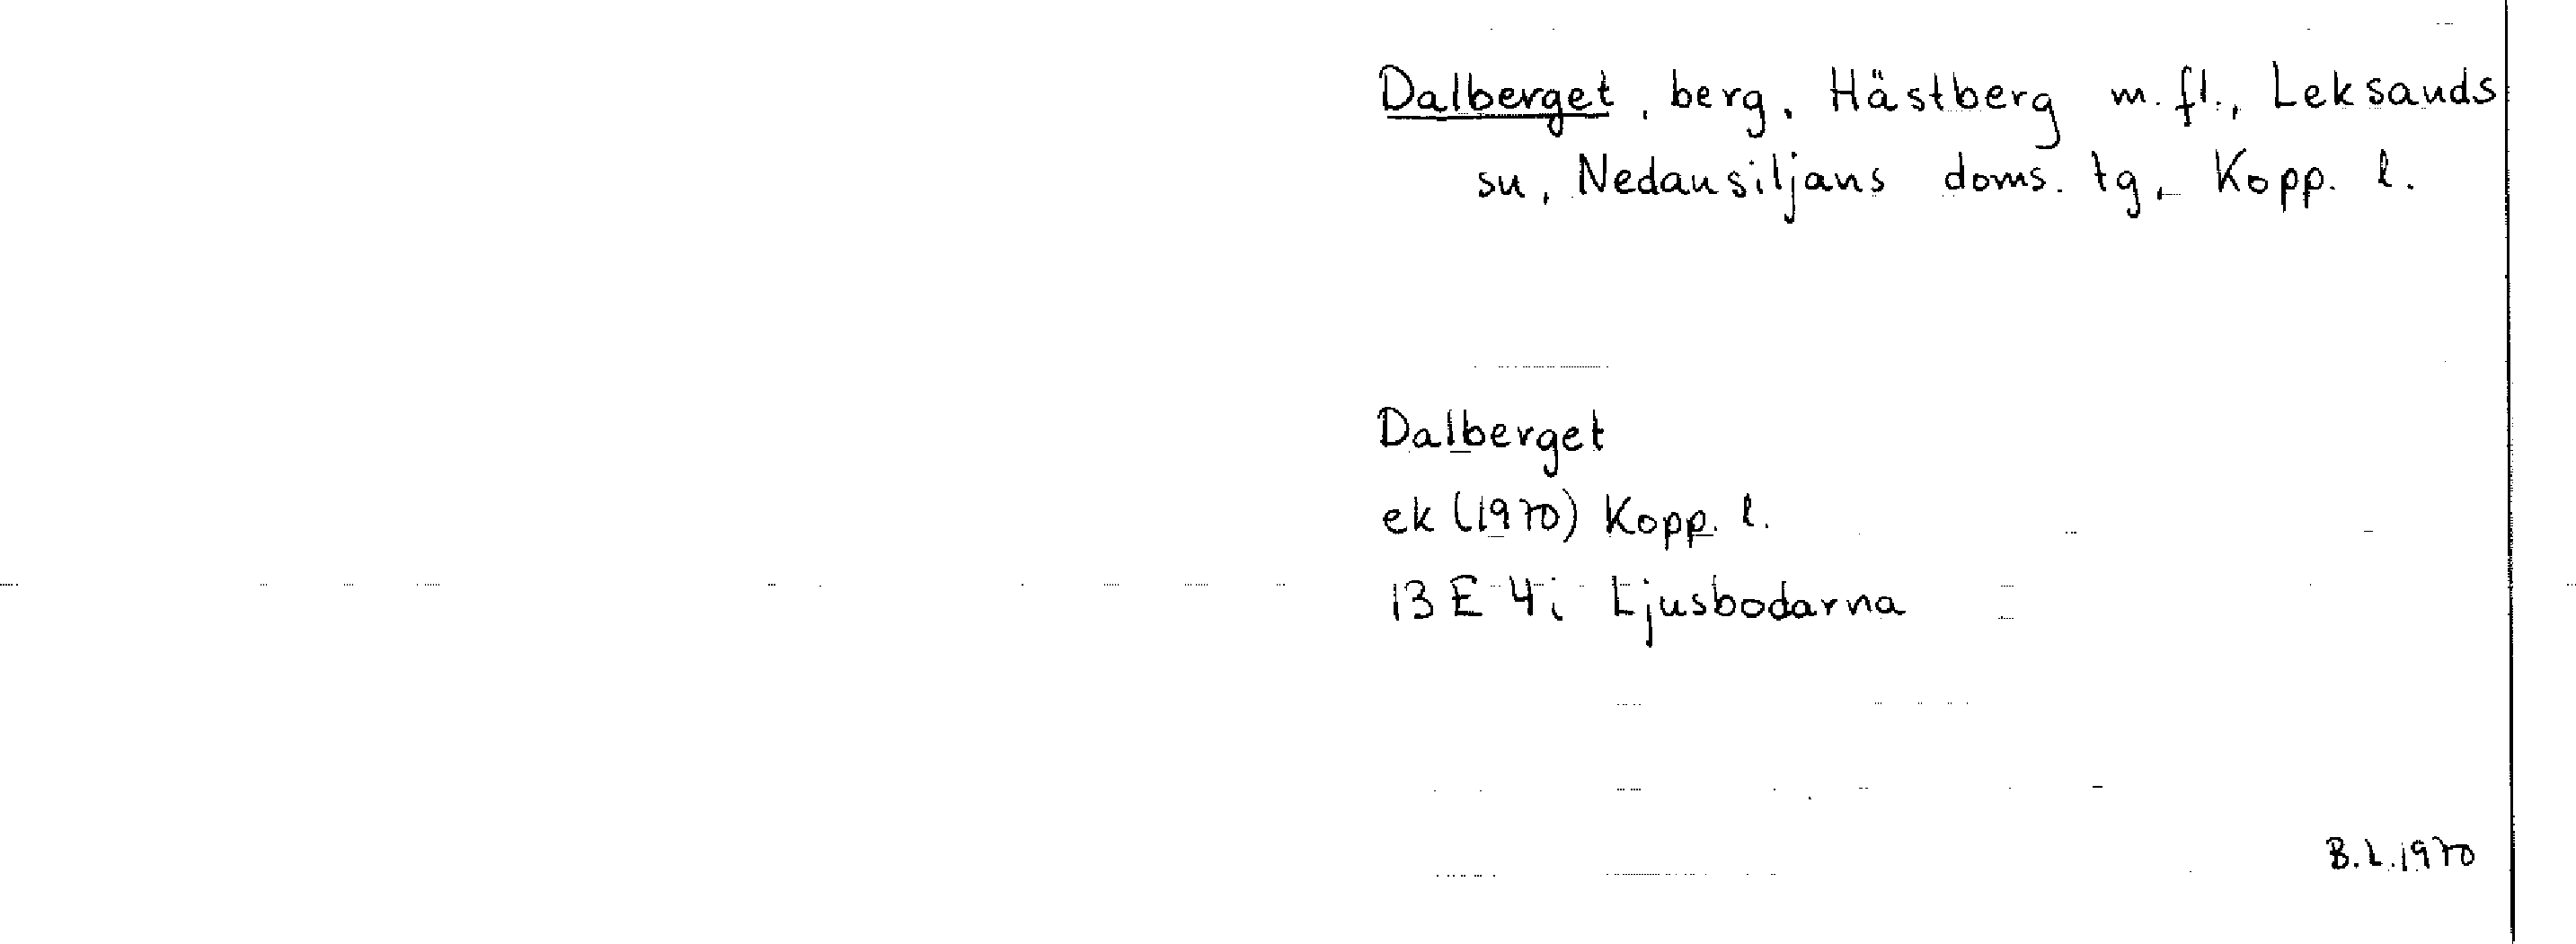 Dalberget, berg, Hästberg m. fl., Leksands
sn, Nedansiljans doms. tg, Kopp. l.
Dalberget
ek (1970) Kopp. l.
13 E 4i Ljusbodarna
B.L. 1970